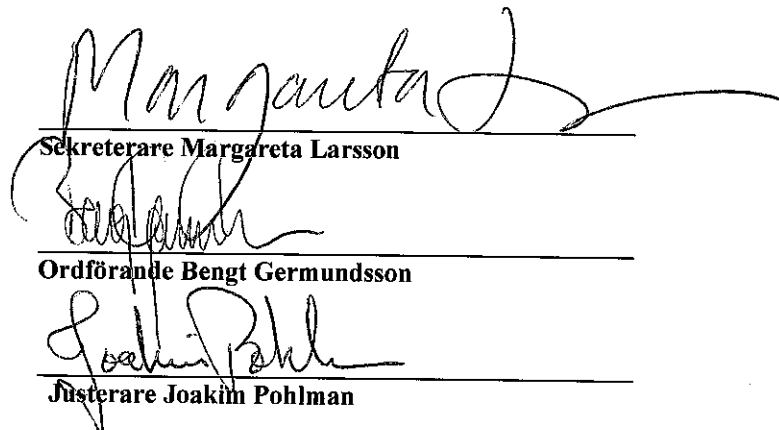 Margareta L
Sekreterare Margareta Larsson
Ordförande Bengt Germundsson
Joakim Pohlman
Justerare Joakim Pohlman